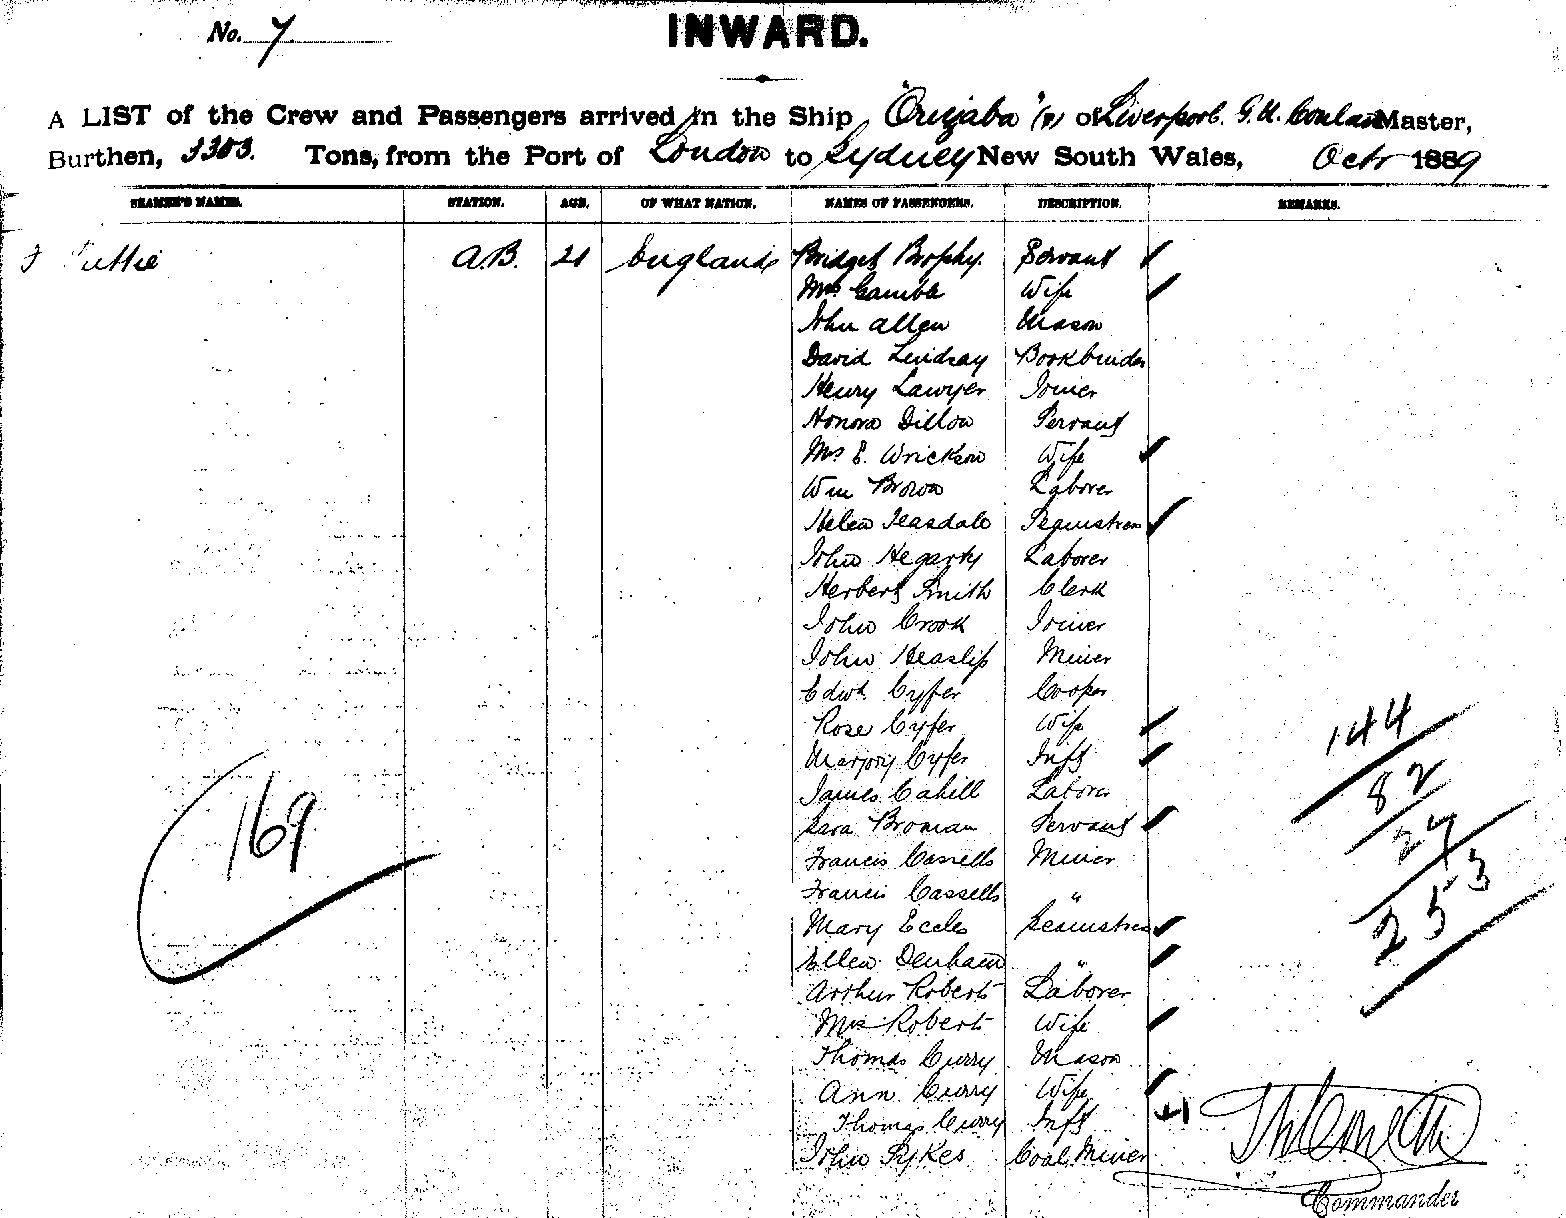 No. 7
INWARD.
A LIST of the Crew and Passengers arrived in the Ship "Orizaba" (s) of Liverpool. G. N. Conlan Master,
Burthen, 3303. Tons, from the Port of London to Sydney New South Wales, Octr 1889
SEAMEN'S NAMES. STATION. AGE. OF WHAT NATION. NAMES OF PASSENGERS. DESCRIPTION. REMARKS.
A.B. 21 England Bridget Brophy. Servant
Mrs Gamble Wife
John Allen Mason
David Lindsay Bookbinder
Henry Lawyer Joiner
Honora Dillon Servant
Mrs E. Wrickson Wife
Wm Brown Laborer
Helen Teasdale Seamstress
John Hegarty Laborer
Herbert Smith Clerk
John Crook Joiner
John Heaslip Miner
Edwd. Cyfer Cooper
Rose Cyfer Wife
Marjory Cyfer Inft
James Cahill Laborer
Sara Broman Servant
Francis Cassells Miner
Francis Cassells "
Mary Eccles Seamstress
Ellen Denham "
Arthur Roberts Laborer
Mrs Roberts Wife
Thomas Curry Mason
Ann Curry Wife
Thomas Curry Inft
John Sykes Coal Miner
169
144
82
27
253
Commander